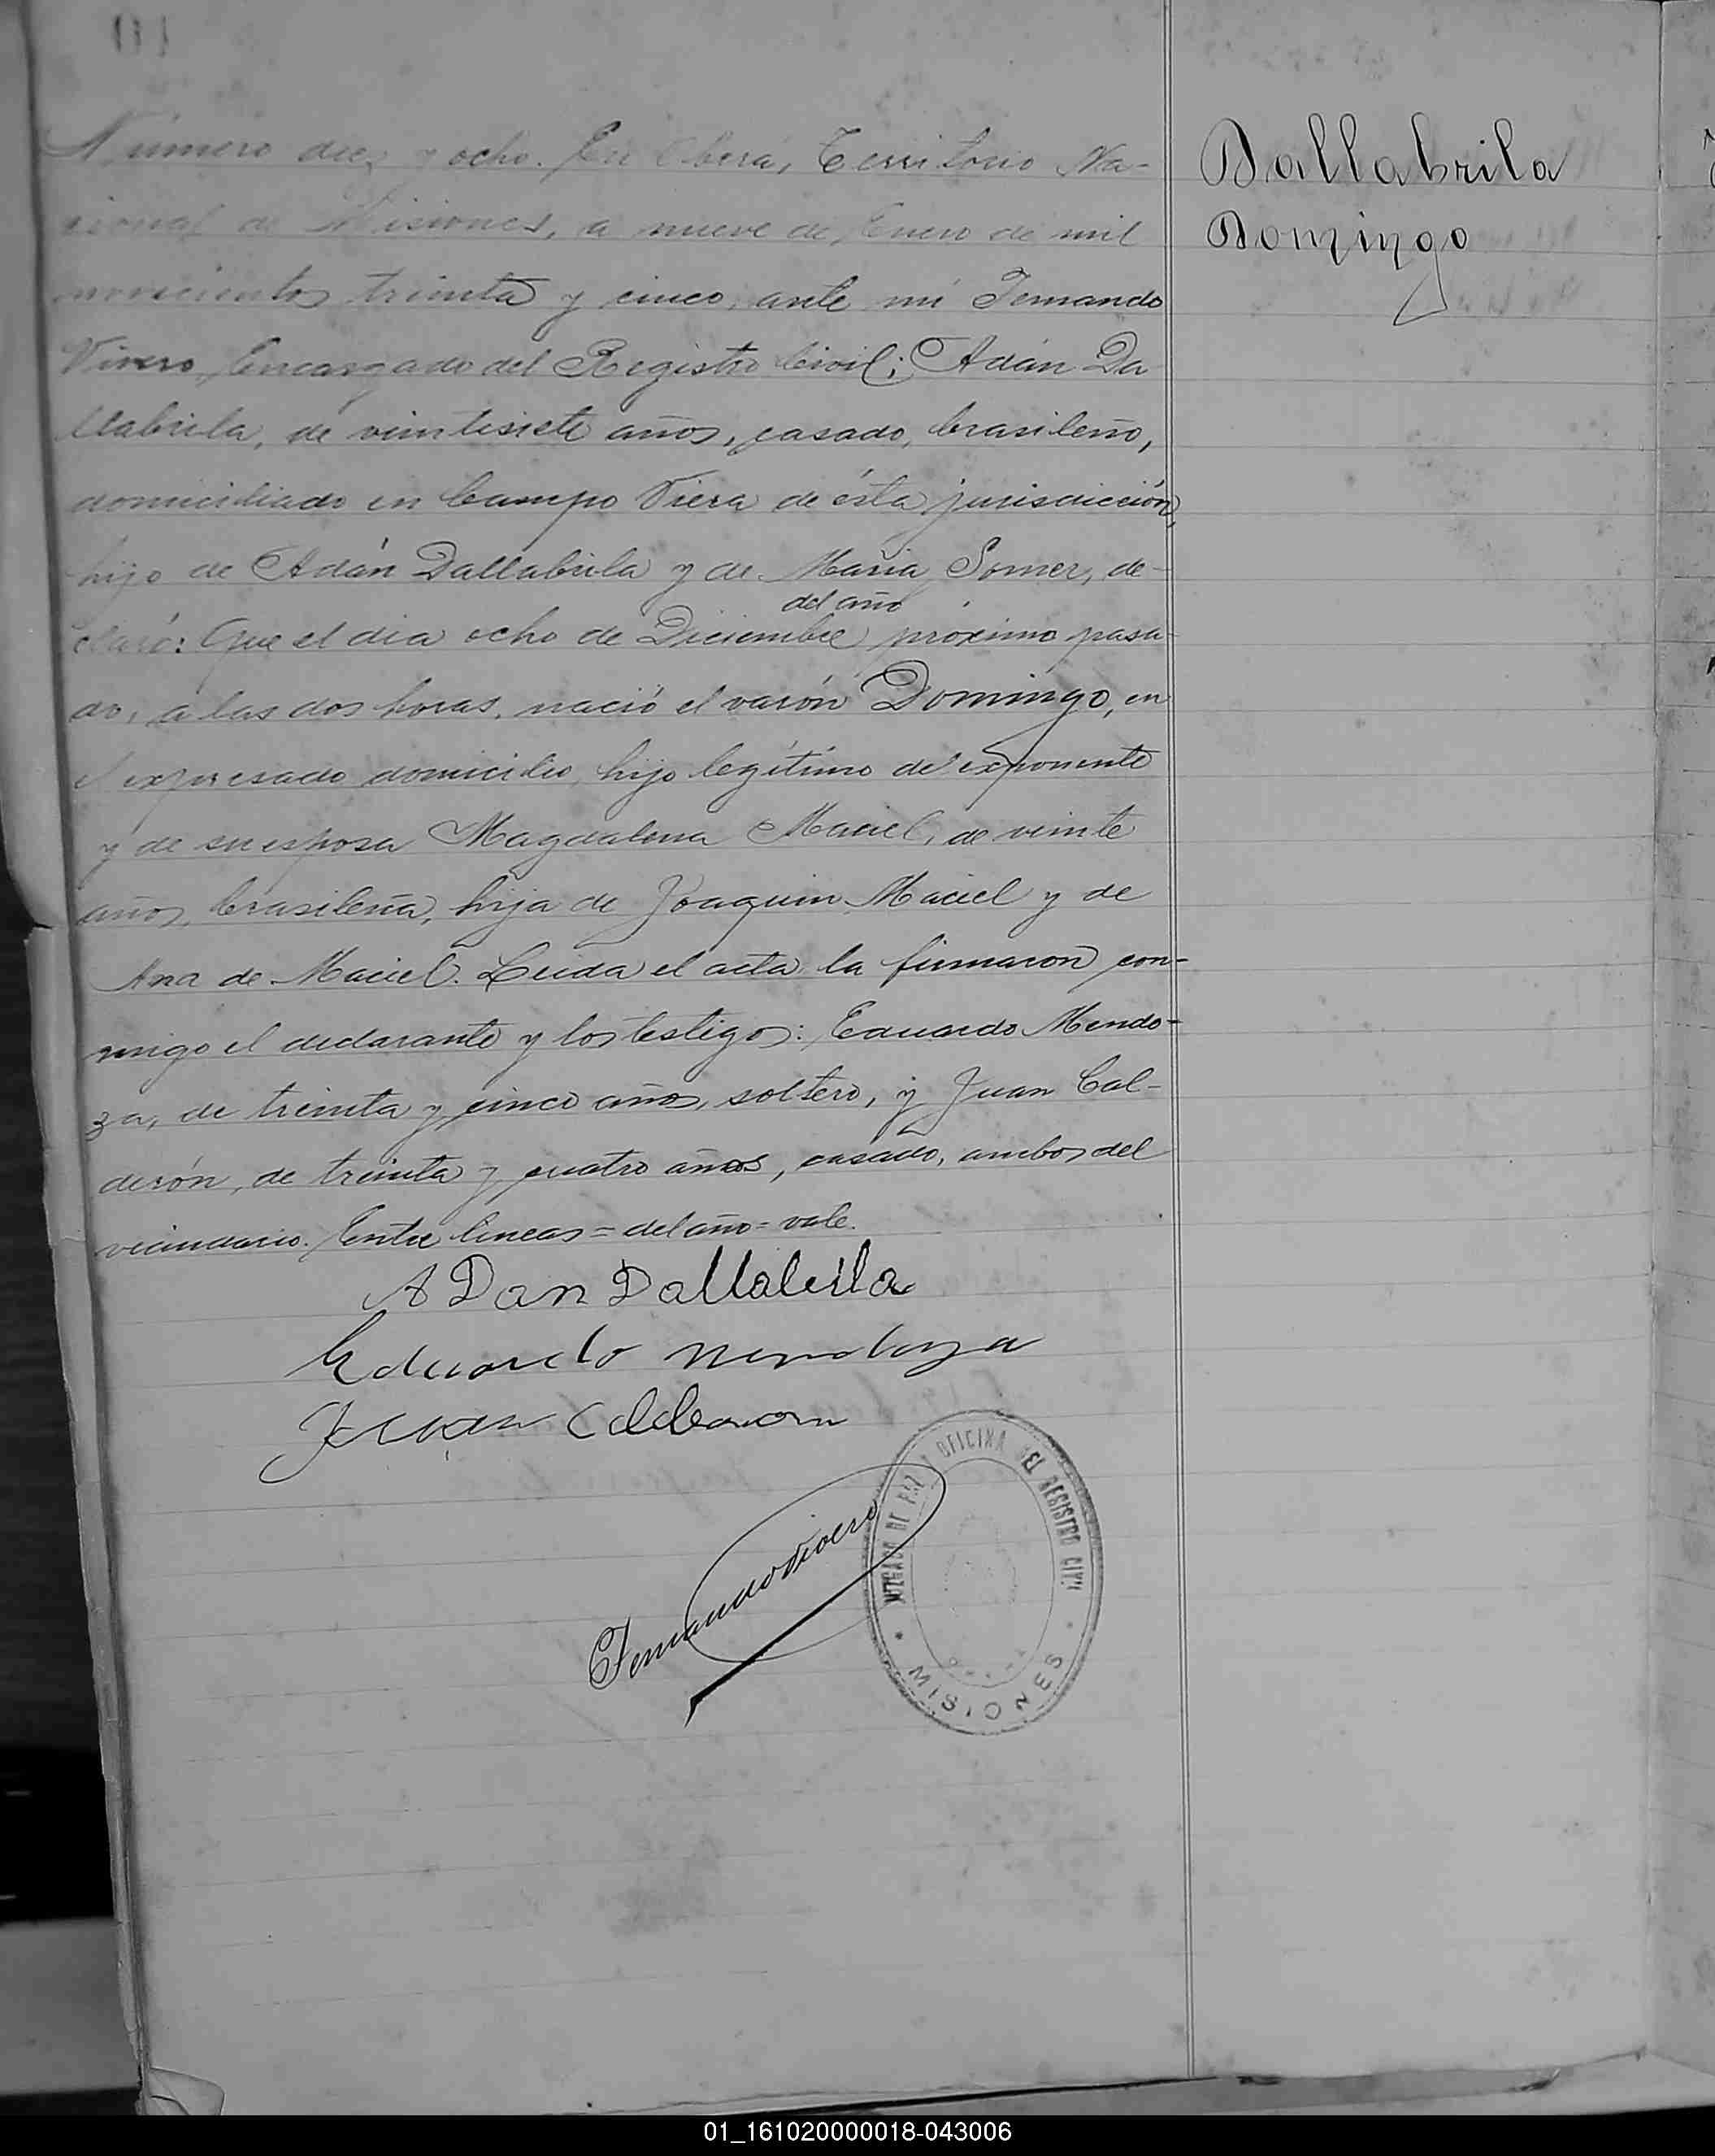 Número diez y ocho. En Oberá, Territorio Na-
cional de Misiones, a nueve de Enero de mil
novecientos treinta y cinco, ante mi Fernando
Vivero, Encargado del Registro Civil; Adán Da
llabrila, de veintisiete años, casado, brasileño,
domiciliado en Campo Viera de ésta jurisdicción,
hijo de Adán Dallabrila y de Maria Somer, de-
del año
claró: Que el dia ocho de Diciembre próximo pasa-
do, a las dos horas, nació el varón Domingo, en
el expresado domicilio, hijo legítimo del exponente
y de su esposa Magdalena Maciel, de veinte
años, brasileña, hija de Joaquin Maciel y de
Ana de Maciel. Leida el acta la firmaron con-
migo el declarante y los testigos: Eduardo Mendo-
za, de treinta y cinco años, soltero, y Juan Cal-
derón, de treinta y cuatro años, casado, ambos del
vecindario. Entre lineas = del año = vale.
ADan Dallabrila
Eduardo Mendoza
Juan Calderon
Fernando Vivero
JUZGADO DE PAZ Y OFICINA DEL REGISTRO CIVIL
* MISIONES *
Dallabrila
Domingo
01_161020000018-043006